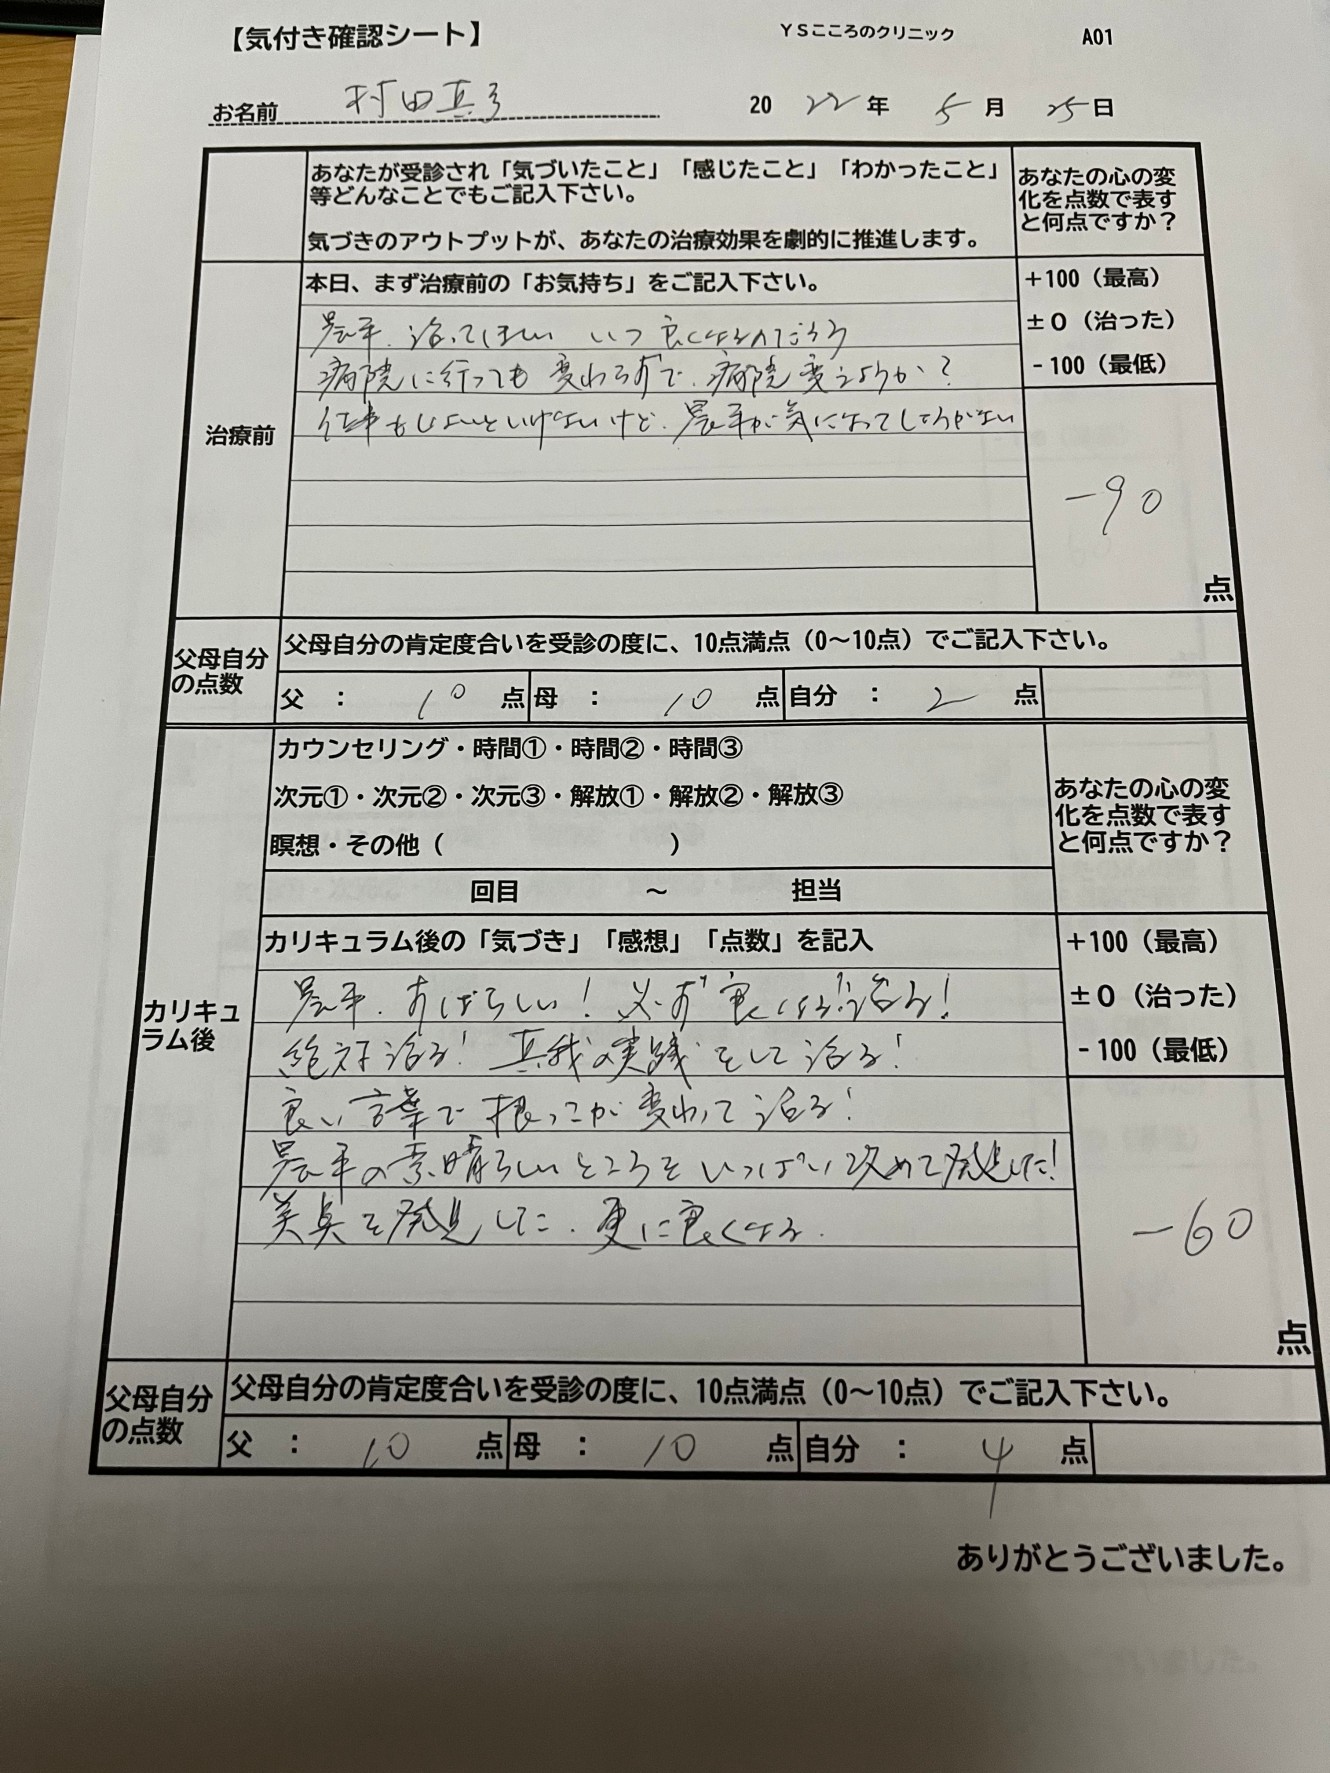 【気付き確認シート】
YSこころのクリニック
A01
お名前 村田真弓
2022年 5月 25日
あなたが受診され「気づいたこと」「感じたこと」「わかったこと」
等どんなことでもご記入下さい。
気づきのアウトプットが、あなたの治療効果を劇的に推進します。
あなたの心の変
化を点数で表す
と何点ですか？
治療前
本日、まず治療前の「お気持ち」をご記入下さい。
+100（最高）
±0（治った）
-100（最低）
晃平、治ってほしい いつ良くなるのだろう
病院に行っても変わらずで、病院変えようか？
仕事もしないといけないけど、晃平が気になってしょうがない
-90
点
父母自分
の点数
父母自分の肯定度合いを受診の度に、10点満点（0～10点）でご記入下さい。
父 ： 10 点 母 ： 10 点 自分 ： 2 点
カウンセリング・時間①・時間②・時間③
次元①・次元②・次元③・解放①・解放②・解放③
瞑想・その他（ ）
あなたの心の変
化を点数で表す
と何点ですか？
回目 ～ 担当
カリキュ
ラム後
カリキュラム後の「気づき」「感想」「点数」を記入
+100（最高）
±0（治った）
-100（最低）
晃平、すばらしい！必ず良くなる!!治る！
絶対治る！真我の実践をして治る！
良い言葉で根っこが変わって治る！
晃平の素晴らしいところをいっぱい改めて発見した！
美点を発見した。更に良くなる。
-60
点
父母自分
の点数
父母自分の肯定度合いを受診の度に、10点満点（0～10点）でご記入下さい。
父 ： 10 点 母 ： 10 点 自分 ： 4 点
ありがとうございました。